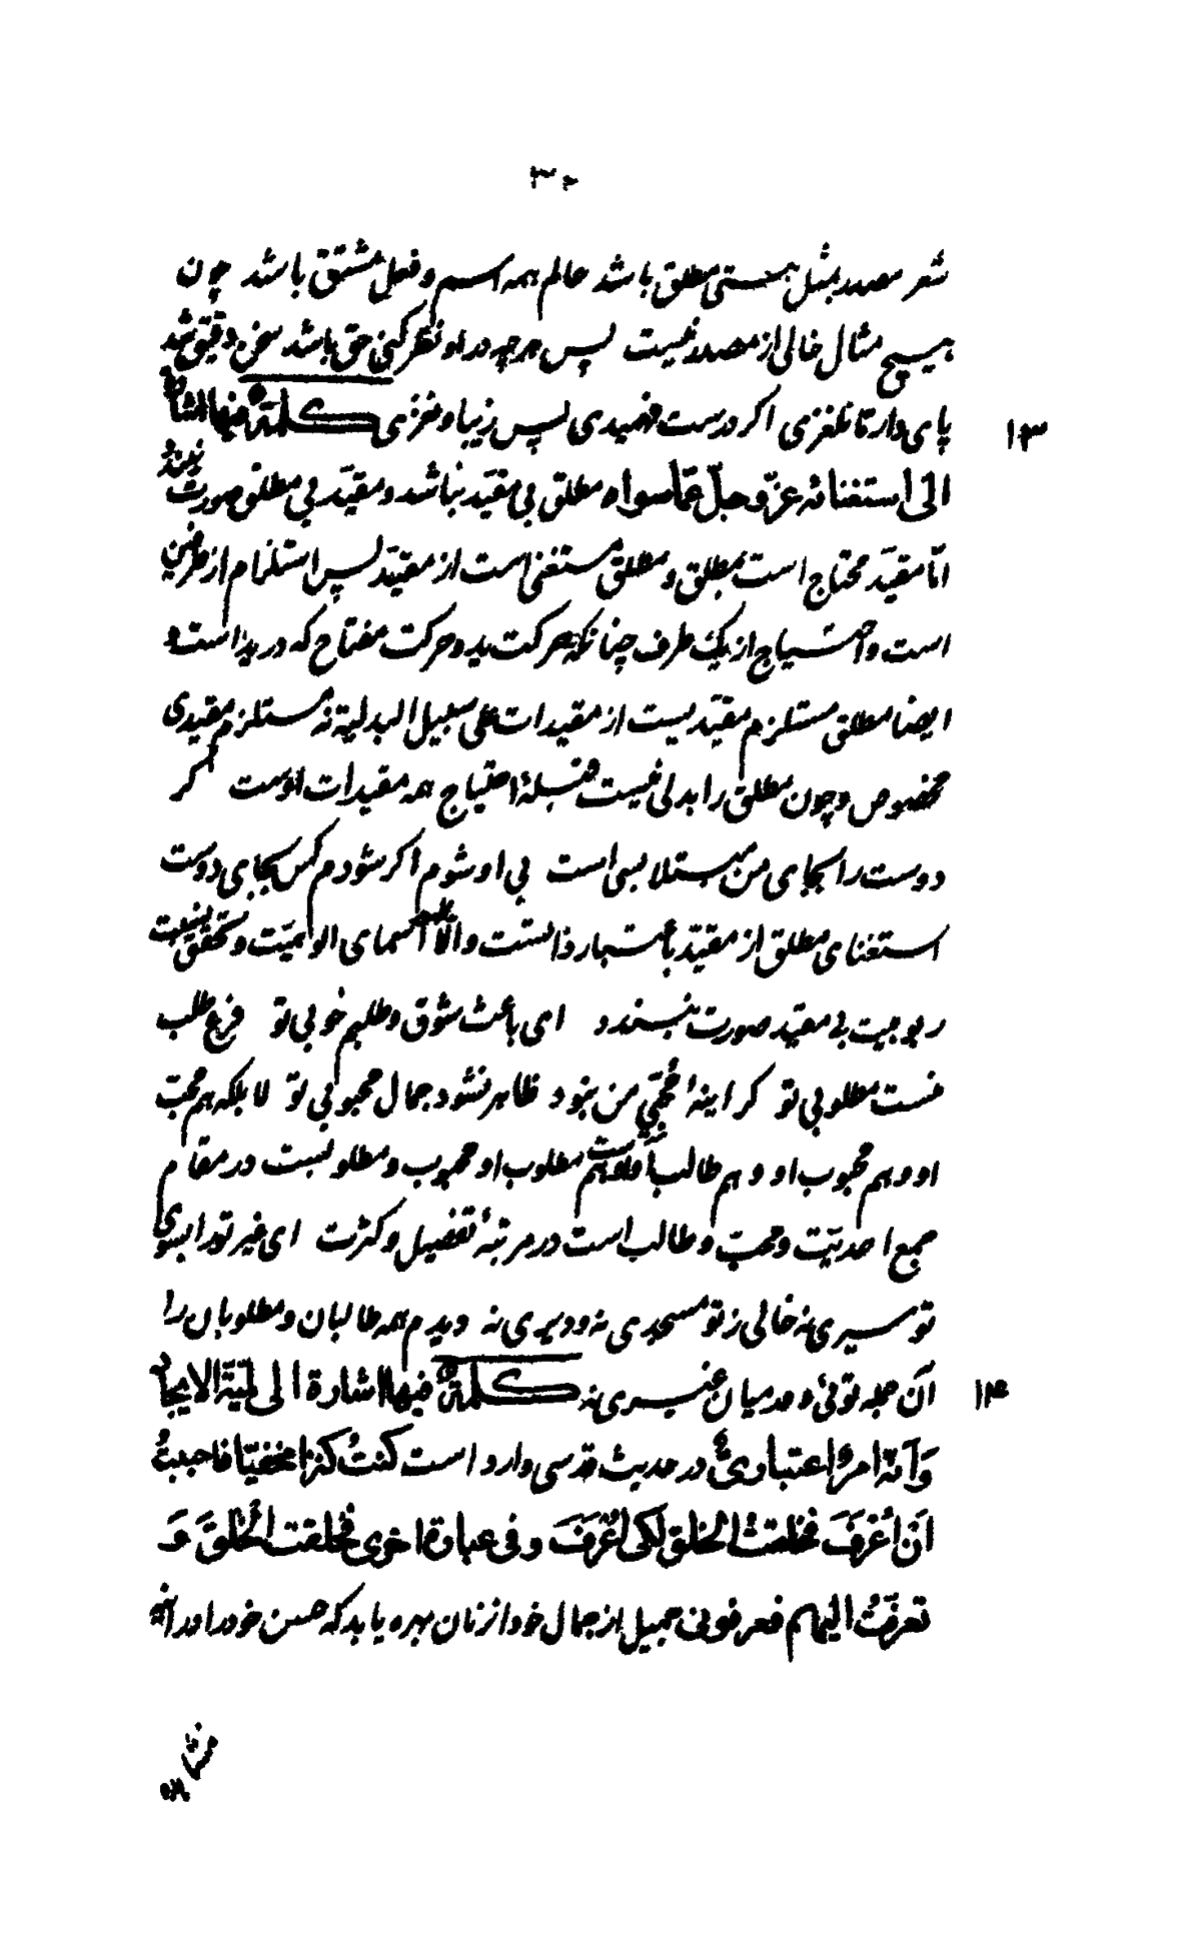 ۳۰
شعر مصدر بمثل هستی مطلق باشد عالم همه اسم و فعل مشتق باشد چون
هیچ مثال خالی از مصدر نیست پس هرچه در او نظر کنی حق باشد سخن دقیق شد
پای دار تا نلغزی اکر درست فهمیدی پس زیبا و نغزی کلمة فیها اشارة
۱۳
الی استغنائه عزّ و جلّ عمّا سواه مطلق بی مقیّد نباشد و مقیّد بی مطلق صورت نبندد
امّا مقیّد محتاج است بمطلق و مطلق مستغنی است از مقیّد پس استلزام از طرفین
است و احتیاج از یک طرف چنانکه حرکت ید و حرکت مفتاح که در ید است و
ایضا مطلق مستلزم مقیّدیست از مقیدات علی سبیل البدلیة نه مستلزم مقیدی
مخصوص و چون مطلق را بدلی نیست قبلهٔ احتیاج همه مقیدات اوست کر
دوست را بجای من مبتلا بسی است بی او شوم اکر شودم کس بجای دوست
استغنای مطلق از مقیّد باعتبار ذاتست و الّا ظهور اسمای الوهیّت و تحقّق نسبت
ربوبیت بی مقیّد صورت نبندد ای باعث شوق و طلبم خوبی تو فرع طلب
منست مطلوبی تو کر اینهٔ محبّی من نبود ظاهر نشود جمال محبوبی تو لا بلکه هم محبّ
او و هم محبوب او و هم طالب او و هم مطلوب او محبوب و مطلوبست در مقام
جمع احدیّت و محبّ و طالب است در مرتبهٔ تفصیل و کثرت ای غیر تو را بسوی
تو سیری نه خالی ز تو مسجدی نه و دیری نه دیدم همه طالبان و مطلوبان را
آن جمله توئی و در میان غیری نه کلمة فیها اشارة الی لمّیّة الایجاد
۱۴
وَ اَنّه امرٌ اعتباریٌّ در حدیث قدسی وارد است کنتُ کنزا مخفیّا فاحببتُ
اَنْ اُعْرَفَ فخلقت الخلق لکی اُعْرَفَ و فی عبارة اخری فخلقت الخلقَ وَ
تعرفّتُ الیهم فعرفونی جمیل از جمال خود از زمان بهره یابد که حسن خود را در آینه